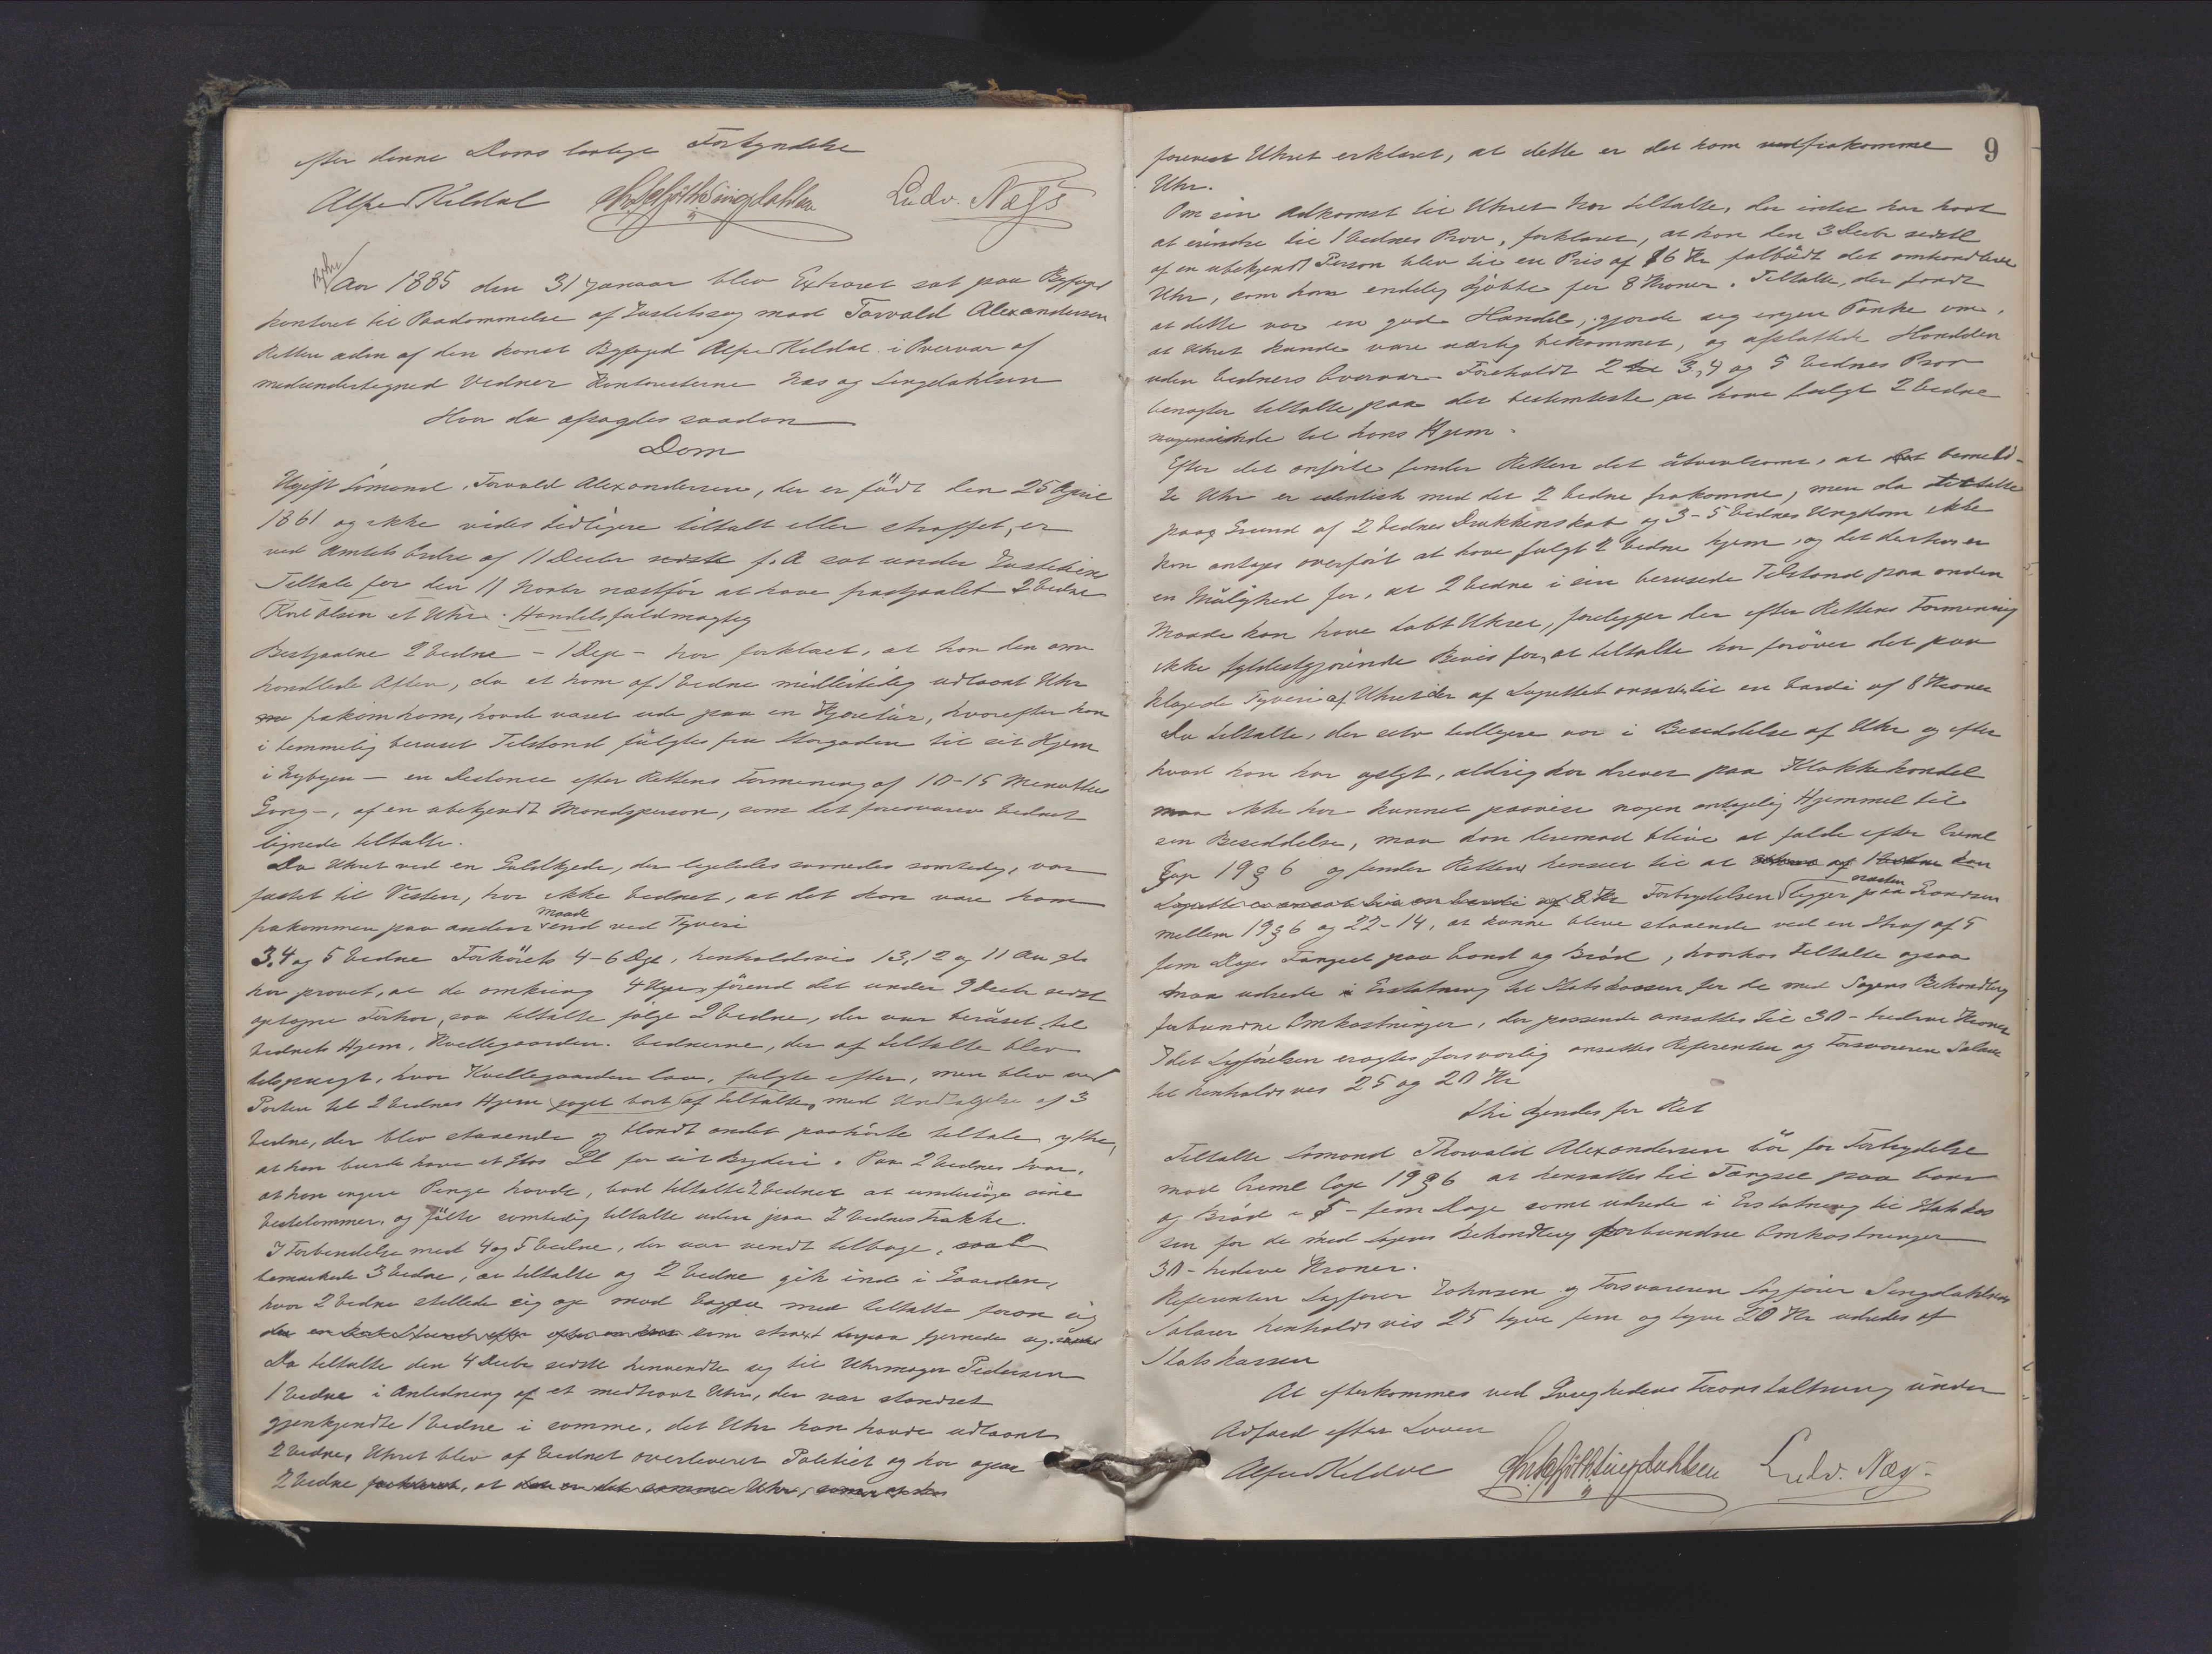 efter denne Doms lovlige Forkyndelse
Alfred Keldal Ludv. Næss
Aar 1885 den 31 Januar blev Extraret sat paa Byfoged
kontoret til Paadømmelse af Justitssag mod Torvald Alexandersen
Retten adm af den konst Byfoged Alfred Keldal i Overvær af
medundertegned Vidner Kontoristerne Næs og Lingdahlsen
Hvor da afsagdes saadan
Dom
Ugift Sömand, Torvald Alexandersen, der er født den 25 April
1861 og ikke vides tidligere tiltalt eller straffet, er
ved Amtets Ordre af 11 Decbr sidste f. A sat under Justitiens
Tiltale for den 11 Novbr næstför at have frastjaalet 2 Vidne
Karl Olsen et Uhr. Handelsfuldmægtig
Bestjaalne 2 Vidne – 1 Dep – har forklaret, at han den om
handlede Aften, da et ham af 1 Vidne midlertidig udlaant Uhr
frakom ham, havde været ude paa en Kjøretur, hvorefter han
i temmelig beruset Tilstand fulgtes fra Storgaden til sit Hjem
i Nybyen – en Distance efter Rettens Formening af 10–15 Minutters
Gang –, af en ubekjendt Mandsperson, som det forekommer Vidnet
lignede tiltalte.
Da Uhret ved en Guldkjede, der ligeledes savnedes samtidig, var
fæstet til Vesten, har ikke Vidnet, at det kan være ham
frakommen paa anden Maade end ved Tyveri
3, 4 og 5 Vidne Forhörets 4–6 Dep, henholdsvis 13, 12 og 11 Aar gl.
har provet, at de omkring 4 Uger förend det under 9 Decbr sidst
optagne Forhör, saa tiltalte følge 2 Vidne, der var beruset, til
Vidnets Hjem, Kvellegaarden. Vidnerne, der af tiltalte blev
tilspurgt, hvor Kvellegaarden laa, fulgte efter, men blev ved
Porten til 2 Vidnes Hjem jaget bort af tiltalte, med Undtagelse af 3
Vidne, der blev staaende og blandt andet paahörte tiltalte ytre,
at han burde have et Glas Öl for sit Bryderi. Paa 2 Vidnes Svar,
at han ingen Penge havde, bad tiltalte 2 Vidnet at undersöge sine
Vestelommer, og fölte samtidig tiltalte uden paa 2 Vidnes Frakke.
I Forbindelse med 4 og 5 Vidne, der var vendt tilbage,
bemærkede 3 Vidne, at tiltalte og 2 Vidne gik ind i Gaarden,
hvor 2 Vidne stillede sig op mod Væggen med tiltalte foran sig
som strax derpaa fjernede sig.
Da tiltalte den 4 Decbr sidste henvendte sig til Uhrmager Pedersen
1 Vidne i Anledning af et medhavt Uhr, der var standset
gjenkjendte 1 Vidne i samme, det Uhr han havde udlaant
2 Vidne, Uhret blev af Vidnet overleveret Politiet og har ogsaa
2 Vidne forklaret, at det er det samme Uhr,
9
forevist Uhret erklæret, at dette er det ham frakomne
Uhr.
Om sin Adkomst til Uhret har tiltalte, der intet har havt
at erindre til 1 Vidnes Prov, forklaret, at han den 3 Decbr sidstl
af en ubekjendt Person blev til en Pris af 16 Kr falbudt det omhandlede
Uhr, som han endelig kjöbte for 8 Kroner. Tiltalte, der fandt
at dette var en god Handel, gjorde sig ingen Tanke om,
at Uhret kunde være uærlig bekommet, og afsluttede Handelen
uden Vidners Overvær. Foreholdt 2 3, 4 og 5 Vidnes Prov
benægter tiltalte paa det bestemteste at have fulgt 2 Vidne
nogensinde til hans Hjem.
Efter det anförte finder Retten det utvivlsomt, at bemeld-
te Uhr er identisk med det 2 Vidne frakomne, men da Tiltalte
paa Grund af 2 Vidnes Drukkenskab og 3–5 Vidnes Ungdom ikke
kan antages overført at have fulgt 2 Vidne hjem, og det derhos er
en Mulighed for, at 2 Vidne i sin berusede Tilstand paa anden
Maade kan have tabt Uhret, foreligger der efter Rettens Formening
ikke fyldestgjørende Bevis for, at tiltalte har foröver det paa
klagede Tyveri af Uhret der af Laurettet ansaaes til en Værdi af 8 Kroner
Da tiltalte, der selv tidligere var i Besiddelse af Uhr og efter
hvad han har oplyst, aldrig har drevet paa Klokkehandel
ikke har kunnet paavise nogen antagelig Hjemmel til
sin Besiddelse, maa han derimod blive at fælde efter Criml
Cap 19 § 6 og finder Retten henseet til at
Forbrydelsen næsten ligger paa Grændsen
mellem 19 § 6 og 22–14, at kunne blive staaende ved en Straf af 5
fem Dages Fængsel paa Vand og Bröd, hvorhos tiltalte ogsaa
maa udrede i Erstatning til Statskassen for de med Sagens Behandling
forbundne Omkostninger, der passende ansættes til 30 – tredive Kroner
Idet Sagförelsen eragtes forsvarlig ansættes Referenten og Forsvareren Salær
til henholdsvis 25 og 20 Kr
Thi kjendes for Ret
Tiltalte Sömand Thorvald Alexandersen bör for Forbrydelse
mod Criml Cap 19 § 6 at hensættes til Fængsel paa Vand
og Bröd i 5 – fem Dage samt udrede i Erstatning til Statskas
sen for de med Sagens Behandling forbundne Omkostninger
30 – tredive Kroner.
Referenten Sagförer Johnsen og Forsvareren Sagförer Lingdahlsens
Salærer henholdsvis 25 tyve fem og tyve 20 Kr udredes af
Statskassen
At efterkommes ved Övrighedens Foranstaltning under
Adfærd efter Loven
Alfred Keldal Ludv. Næs